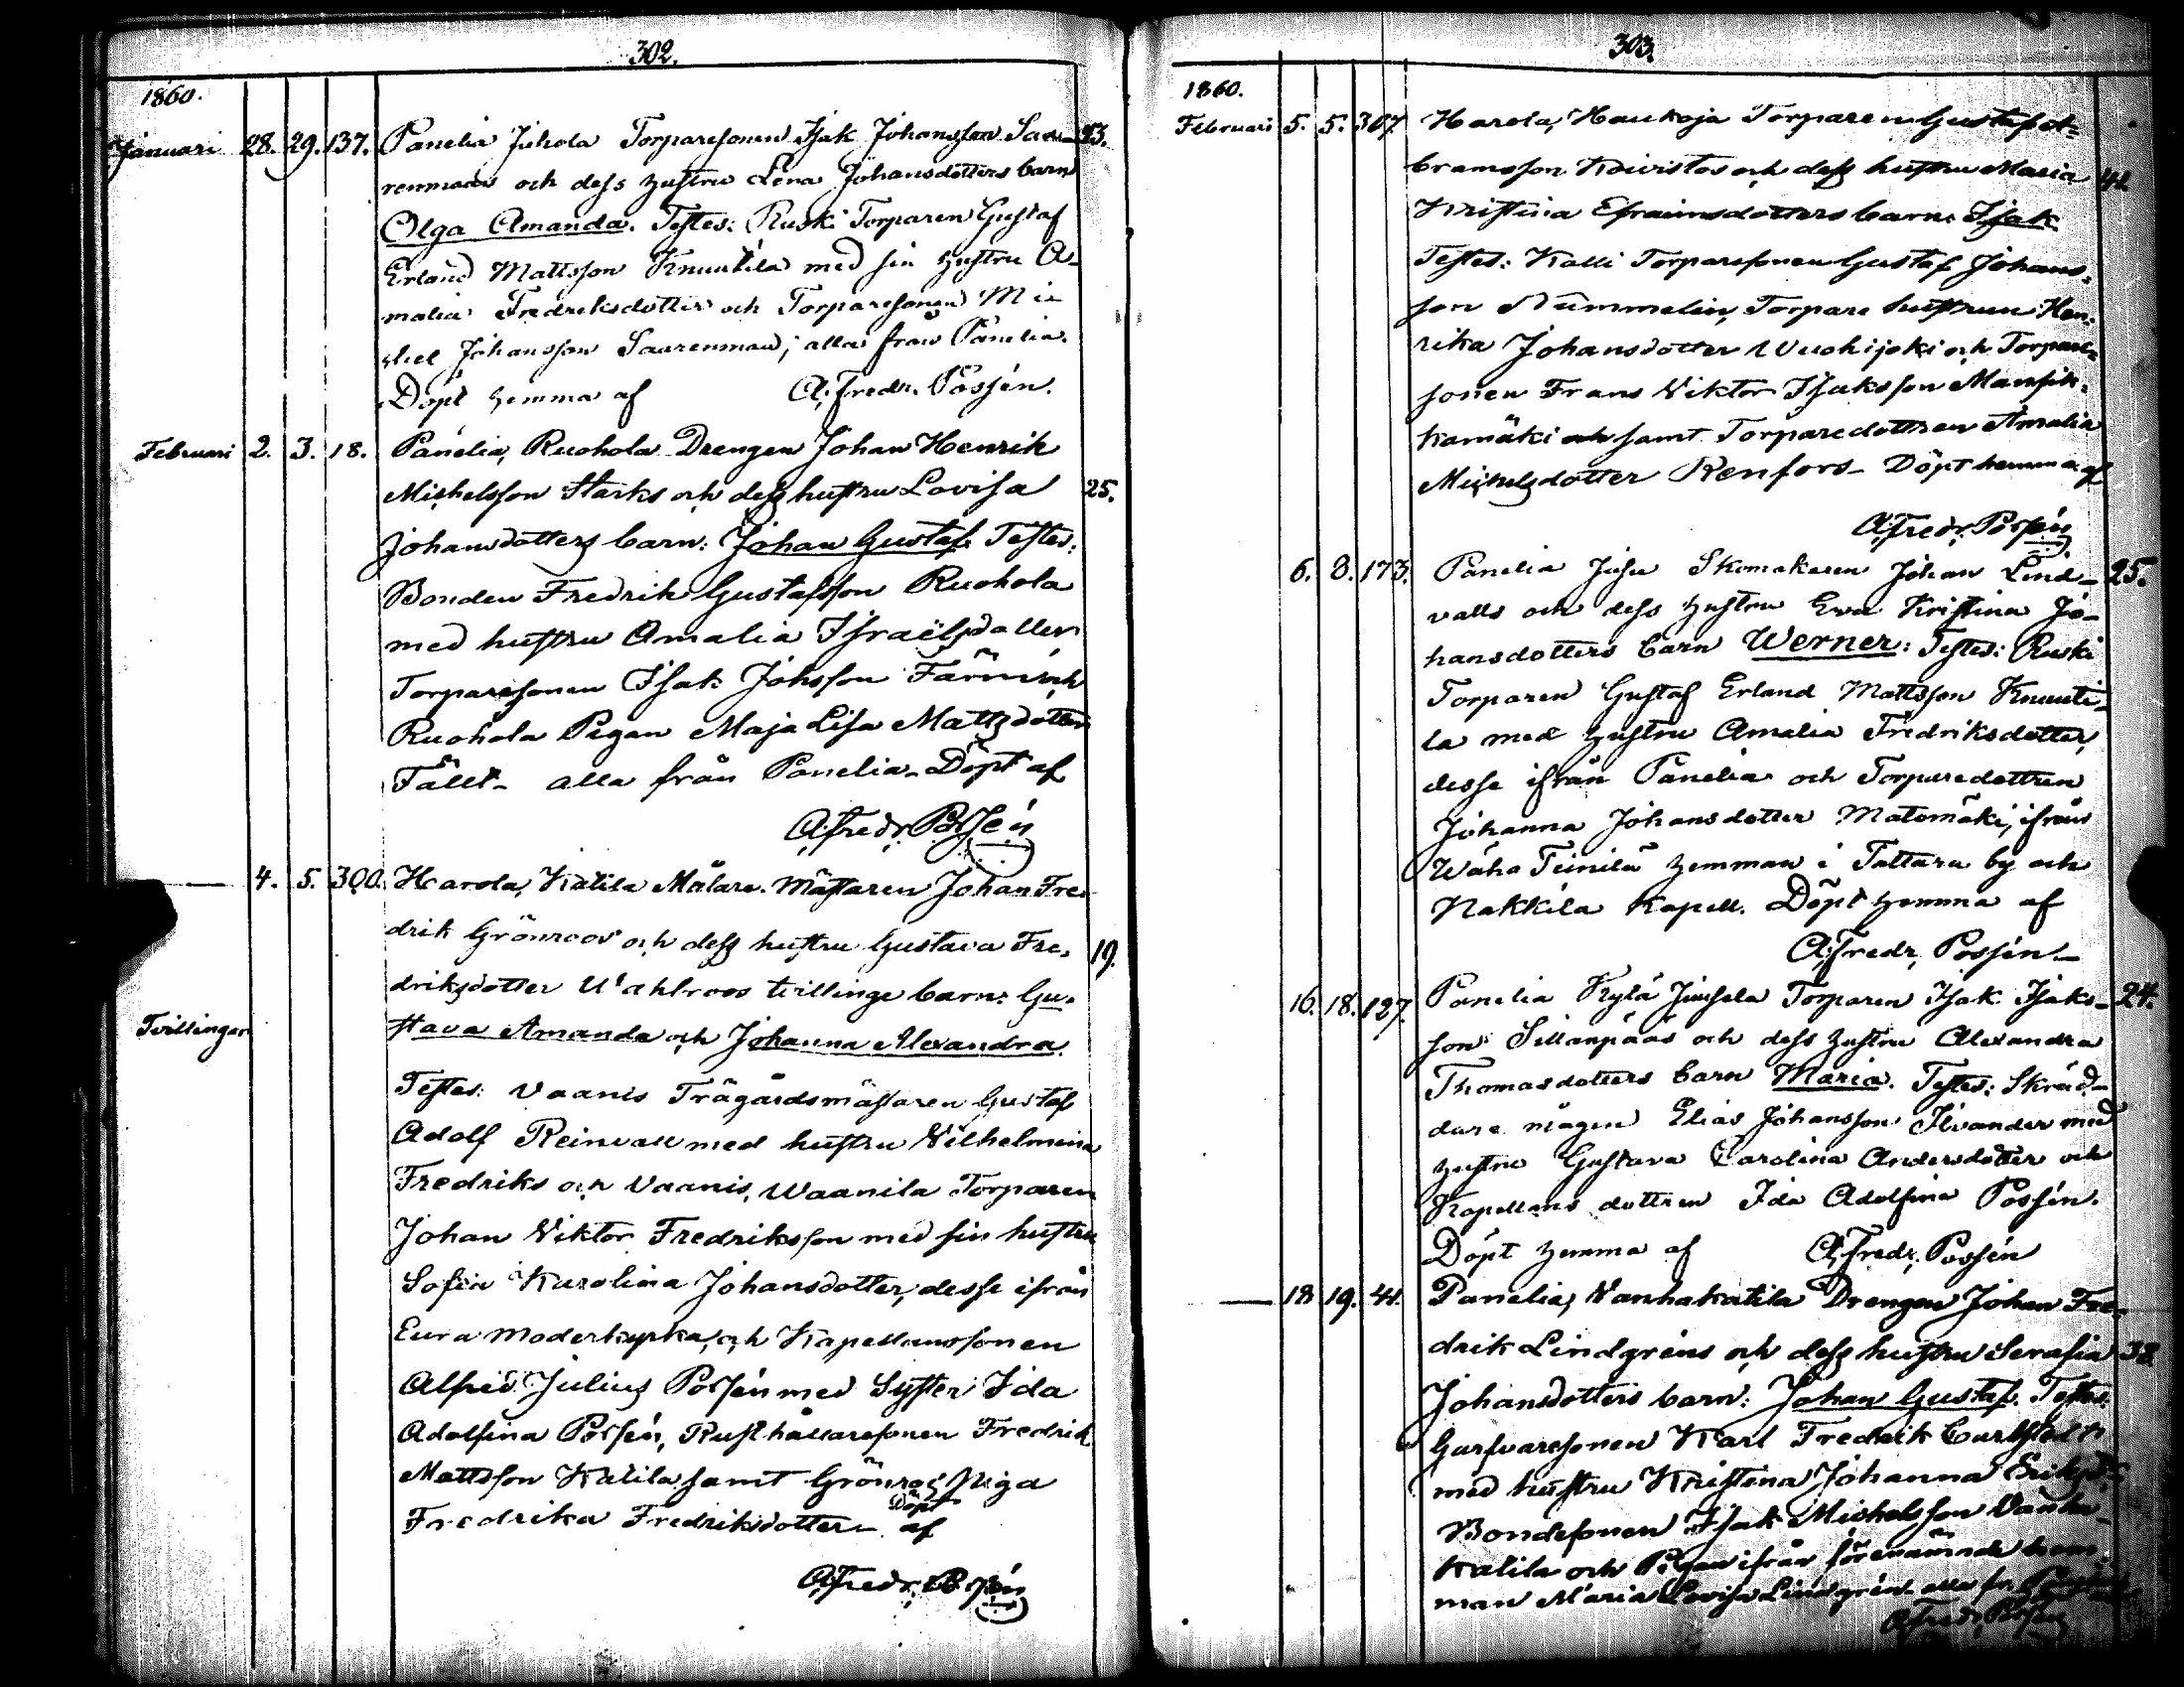 302.
1860.
Januari 28. 29. 137. Panelia Juhola Torparesonen Isak Johansson Saa- 23.
renmaas och dess hustru Lena Johansdotters barn
Olga Amanda. Testes: Ruski Torparen Gustaf
Erland Mattsson Knuutila med sin hustru A-
malia Fredriksdotter och Torparesonen Mi-
chel Johansson Saarenmaa; alla från Panelia.
Döpt hemma af A. Fredr. Possén.
Februari 2. 3. 18. Panelia, Ruohola Drengen Johan Henrik
Michelsson Starks och dess hustru Lovisa 25.
Johansdotters barn: Johan Gustaf. Testes:
Bonden Fredrik Gustafsson Ruohola
med hustru Amalia Israëlsdotter
Torparesonen Isak Johsson Färm
Ruohola Pigan Maja Lisa Mattsdotter
Fällt - alla från Panelia. Döpt af
A. Fredr. Possén
— 4. 5. 300. Harola, Katila Målare Mästaren Johan Fre-
drik Grönroos och dess hustru Gustava Fre- 19.
driksdotter Wahlroos tvillinge barn: Gu-
Tvillingar stava Amanda och Johanna Alexandra.
Testes: Vaanis Trägårdsmästaren Gustaf
Adolf Reinvall med hustru Vilhelmina
Fredriks och Vaanis, Waanila Torparen
Johan Viktor Fredriksson med sin hustru
Sofia Karolina Johansdotter, desse ifrån
Eura Moderkyrka, och Kapellanssonen
Alfred Julius Possén med Syster Ida
Adolfina Possén, Rusthållaresonen Fredrik
Mattsson Katila samt Grönroos Piga
Fredrika Fredriksdotter - Döpt af
A. Fredr. Possén
303.
1860.
Februari 5. 5. 307. Harola, Haukoja Torparen Gustaf A-
bramsson Koivistos och dess hustru Maria 42
Kristina Efraimsdotters barn: Isak
Testes: Kalli Torparesonen Gustaf Johans-
son Nummelin, Torpare hustrun Hen-
rika Johansdotter Wuohijoki och Torpare-
sonen Frans Viktor Isaksson Mansik-
kamäki och samt Torparedottren Amalia
Michelsdotter Renfors - Döpt hemma af
A. Fredr. Possén
6. 8. 173. Panelia Jusu Skomakaren Johan Lind- 25.
valls och dess hustru Eva Kristina Jo-
hansdotters barn Werner: Testes: Ruski
Torparen Gustaf Erland Mattsson Knuuti-
la med hustru Amalia Fredriksdotter,
desse ifrån Panelia och Torparedottren
Johanna Johansdotter Matomäki, ifrån
Wäha Teinilä hemman i Tattara by och
Nakkila Kapell. Döpt hemma af
A. Fredr. Possén -
16. 18. 127. Panelia Kylä Juusela Torparen Isak Isaks- 24.
son Sillanpääs och dess hustru Alexandra
Thomasdotters barn Maria. Testes: Skräd-
dare mågen Elias Johansson Ilvander med
hustru Gustava Carolina Andersdotter och
Kapellans dottren Ida Adolfina Possén.
Döpt hemma af A. Fredr. Possén
— 18 19. 41. Panelia, Vanhakatila Drengen Johan Fre-
drik Lindgréns och dess hustru Serafia 38
Johansdotters barn: Johan Gustaf. Testes:
Garfvaresonen Karl Fredrik
med hustru Kristina Johanna
Bondesonen Isak Michelsson Vanha-
katila och Pigan ifrån förenämnde hem-
man Maria Lovisa Lindgrén alla fr.
A. Fredr. Possén